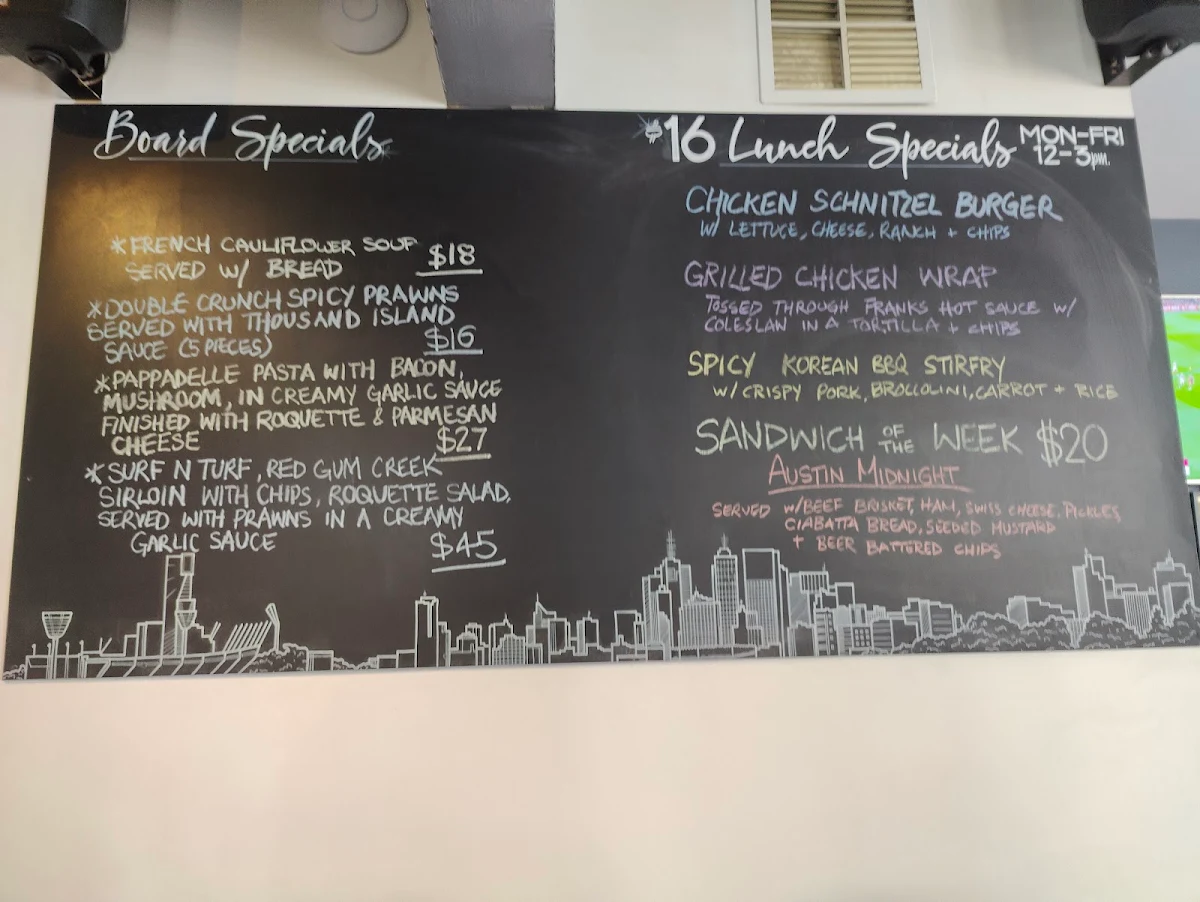 Board Specials
*FRENCH CAULIFLOWER SOUP
SERVED W/ BREAD $18
*DOUBLE CRUNCH SPICY PRAWNS
SERVED WITH THOUSAND ISLAND
SAUCE (5 PIECES) $16
*PAPPADELLE PASTA WITH BACON,
MUSHROOM, IN CREAMY GARLIC SAUCE
FINISHED WITH ROQUETTE & PARMESAN
CHEESE $27
*SURF N TURF, RED GUM CREEK
SIRLOIN WITH CHIPS, ROQUETTE SALAD,
SERVED WITH PRAWNS IN A CREAMY
GARLIC SAUCE $45
$16 Lunch Specials MON-FRI
12-3pm.
CHICKEN SCHNITZEL BURGER
W/ LETTUCE, CHEESE, RANCH + CHIPS
GRILLED CHICKEN WRAP
TOSSED THROUGH FRANKS HOT SAUCE W/
COLESLAW IN A TORTILLA + CHIPS
SPICY KOREAN BBQ STIRFRY
W/ CRISPY PORK, BROCCOLINI, CARROT + RICE
SANDWICH OF THE WEEK $20
AUSTIN MIDNIGHT
SERVED W/BEEF BRISKET, HAM, SWISS CHEESE, PICKLES,
CIABATTA BREAD, SEEDED MUSTARD
+ BEER BATTERED CHIPS